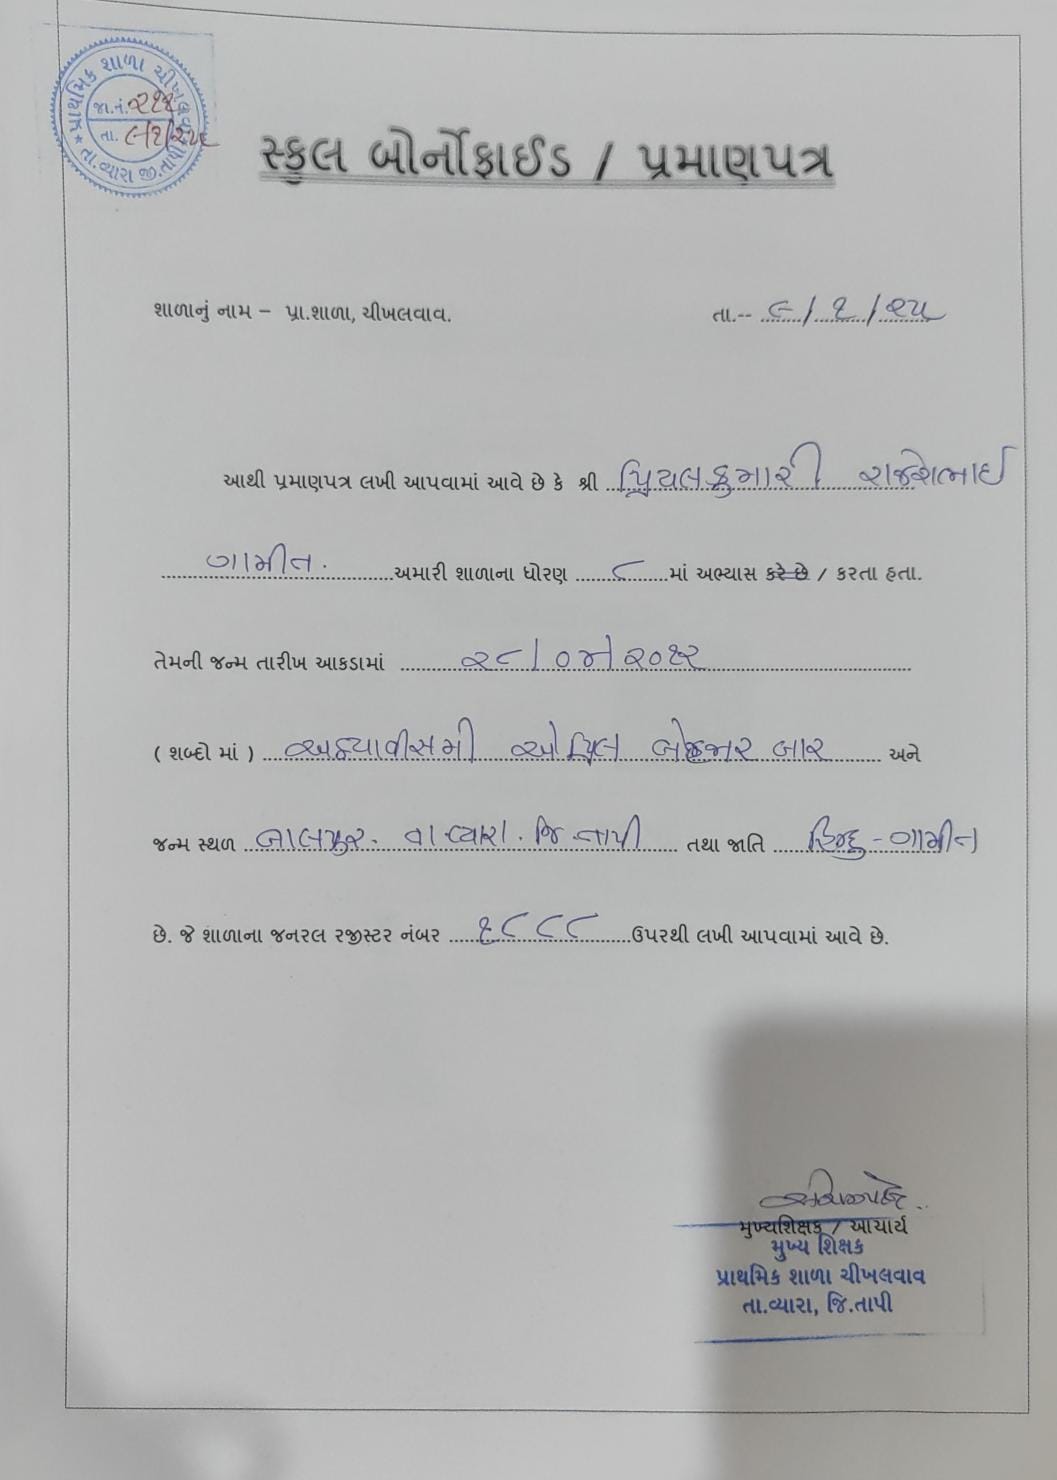 પ્રાથમિક શાળા ચીખલવાવ
જા.નં. ૨૧૪
તા. ૯/૧/૨૫
તા.વ્યારા જી.તાપી
સ્કુલ બોર્નોફાઈડ / પ્રમાણપત્ર
શાળાનું નામ – પ્રા.શાળા, ચીખલવાવ. તા.-- ૯/૧/૨૫
આથી પ્રમાણપત્ર લખી આપવામાં આવે છે કે શ્રી પ્રિયલકુમારી રાજેશભાઈ
ગામીત. અમારી શાળાના ધોરણ ૮ માં અભ્યાસ કરે છે / કરતા હતા.
તેમની જન્મ તારીખ આકડામાં ૨૮/૦૪/૨૦૧૨
( શબ્દો માં ) અઠયાવીસમી એપ્રિલ બેહજાર બાર અને
જન્મ સ્થળ બાલપુર. તા.વ્યારા. જિ.તાપી તથા જાતિ હિન્દુ - ગામીત
છે. જે શાળાના જનરલ રજીસ્ટર નંબર ૧૮૮૮ ઉપરથી લખી આપવામાં આવે છે.
મુખ્યશિક્ષક / આચાર્ય
મુખ્ય શિક્ષક
પ્રાથમિક શાળા ચીખલવાવ
તા.વ્યારા, જિ.તાપી